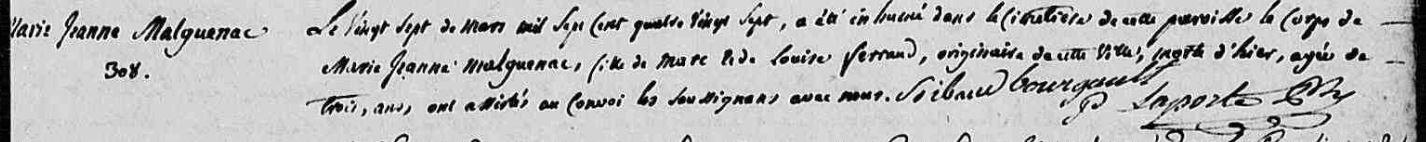 Marie Jeanne Malguenac
308.
Le vingt sept de mars mil sept cent quatre vingt sept, a été inhumé dans le Cimetière de cette paroisse le Corps de
Marie Jeanne Malguenac, fille de Marc & de Louise ferrand, originaire de cette Ville, morte d'hier, agée de
trois, ans, ont assistés au Convoi les soussignans avec nous. Sibaud bourgault
Laporte